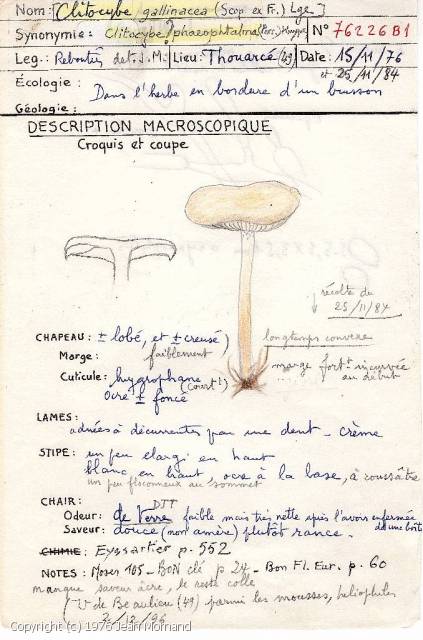 Nom: [Clitocybe gallinacea (Scop ex Fr.) Lge]
Synonymie: Clitocybe? phaeophtalma (Pers.) Kuyper N° 76226B1
Leg.: Reboutis det. J.M. Lieu: Thouarcé (49) Date: 15/11/76
et 25/11/84
Écologie: Dans l'herbe en bordure d'un buisson
Géologie:
DESCRIPTION MACROSCOPIQUE
Croquis et coupe
récolte du
25/11/84
CHAPEAU: ± lobé, et ± creusé) longtemps convexe
Marge: faiblement marge fort^t incurvée
au début
Cuticule: hygrophane (court!)
ocre ± foncé
LAMES:
adnées à décurrentes par une dent - crème
STIPE: un peu élargi en haut
blanc en haut ocre à la base, à roussâtre
un peu floconneux au sommet
CHAIR:
Odeur: de Terre DTT faible mais très nette après l'avoir enfermée
ds une boîte
Saveur: douce (non amère) plutôt rance.
CHIMIE: Eyssartier p. 552
NOTES: Moser 105 - BON clé p 24 - Bon Fl. Eur. p. 60
manque saveur âcre, le reste colle
(V de Beaulieu (49) parmi les mousses, héliophiles
2/12/96
Copyright (c) 1976 Jean Mornand